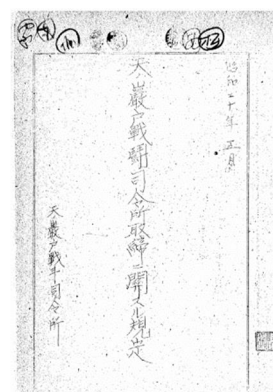 昭和二十年五月
天ノ巖戸戰鬪司令所取締ニ関スル規定
天巖戸戰斗司令所